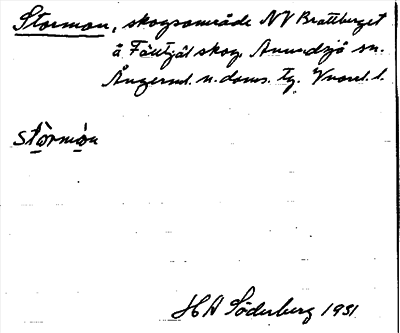 Stormon, skogsområde NV Brattberget
å Fäntjäl skog. Anundsjö sn.
Ångerml. n. doms. tg. Vnorrl. l.
stòrmòn
H A Söderberg 1931